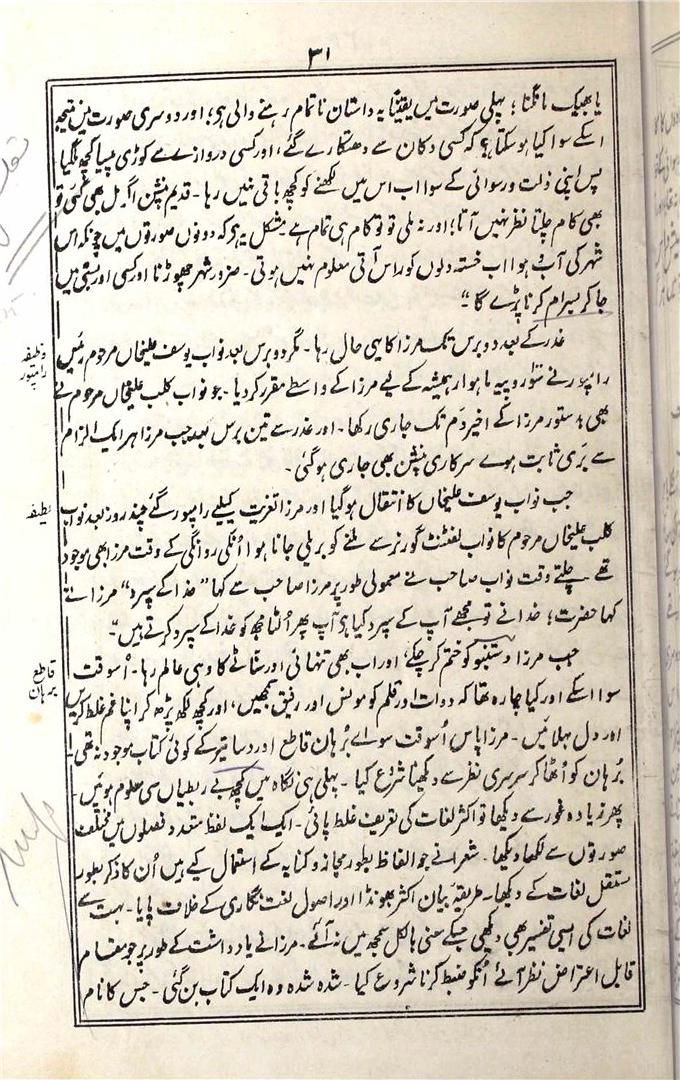 ۳۱
یا بھیک مانگنا؛ پہلی صورت میں یقیناً یہ داستان ناتمام رہنے والی ہی؛ اور دوسری صورت میں نتیجہ
اسکے سوا کیا ہو سکتا ہی؟ کہ کسی دکان سے دھتکارے گئے، اور کسی دروازے سے کوڑی پیسا کچھ مل گیا
پس اپنی ذلت و رسوائی کے سوا اب اس میں لکھنے کو کچھ باقی نہیں رہا۔ قدیم پنشن اگر مل بھی گئی تو
بھی کام چلتا نظر نہیں آتا؛ اور نہ ملی تو تو کام ہی تمام ہے مشکل یہ ہی کہ دونوں صورتوں میں چونکہ اس
شہر کی آب و ہوا اب خستہ دلوں کو راس آتی معلوم نہیں ہوتی۔ ضرور شہر چھوڑنا اور کسی اور بستی میں
جا کر بسرام کرنا پڑے گا"
غدر کے بعد دو برس تک مرزا کا یہی حال رہا۔ مگر دو برس بعد نواب یوسف علیخاں مرحوم رئیس
وظیفہ
رامپور
رامپور نے سو روپیہ ماہوار ہمیشہ کے لیے مرزا کے واسطے مقرر کر دیا۔ جو نواب کلب علیخاں مرحوم نے
بھی بدستور مرزا کے اخیر دم تک جاری رکھا۔ اور غدر سے تین برس بعد جب مرزا ہر ایک الزام
سے بری ثابت ہوے سرکاری پنشن بھی جاری ہو گئی۔
جب نواب یوسف علیخاں کا انتقال ہو گیا اور مرزا تعزیت کیلیے رامپور گئے چند روز بعد نواب
لطیفہ
کلب علیخاں مرحوم کا نواب لفٹنٹ گورنر سے ملنے کو بریلی جانا ہوا اُنکی روانگی کے وقت مرزا بھی موجود
تھے چلتے وقت نواب صاحب نے معمولی طور پر مرزا صاحب سے کہا "خدا کے سپرد" مرزا نے
کہا حضرت؛ خدا نے تو مجھے آپ کے سپرد کیا ہی آپ پھر اُلٹا مجھ کو خدا کے سپرد کرتے ہیں"
جب مرزا دستنبو کو ختم کر چکے، اور اب بھی تنہائی اور سناٹے کا وہی عالم رہا۔ اُسوقت
قاطع
برہان
سوا اسکے اور کیا چارہ تھا کہ دوات اور قلم کو مونس اور رفیق سمجھیں، اور کچھ لکھ پڑھ کر اپنا غم غلط کریں
اور دل بہلائیں۔ مرزا پاس اُسوقت سواے برُہان قاطع اور دساتیر کے کوئی کتاب موجود نہ تھی
برُہان کو اُٹھا کر سرسری نظر سے دیکھنا شروع کیا۔ پہلی ہی نگاہ میں کچھ بے ربطیاں سی معلوم ہوئیں۔
پھر زیادہ غور سے دیکھا تو اکثر لغات کی تعریف غلط پائی۔ ایک ایک لفظ متعدد فصلوں میں مختلف
صورتوں سے لکھا دیکھا۔ شعرا نے جو الفاظ بطور مجاز و کنایہ کے استعمال کیے ہیں اُن کا ذکر بطور
مستقل لغات کے دیکھا۔ طریقۂ بیان اکثر بھونڈا اور اصول لغت نگاری کے خلاف پایا۔ بہت سے
لغات کی ایسی تفسیر بھی دیکھی جسکے معنی بالکل سمجھ میں نہ آئے۔ مرزا نے یادداشت کے طور پر جو مقام
قابل اعتراض نظر آئے اُنکو ضبط کرنا شروع کیا۔ شدہ شدہ وہ ایک کتاب بن گئی۔ جس کا نام